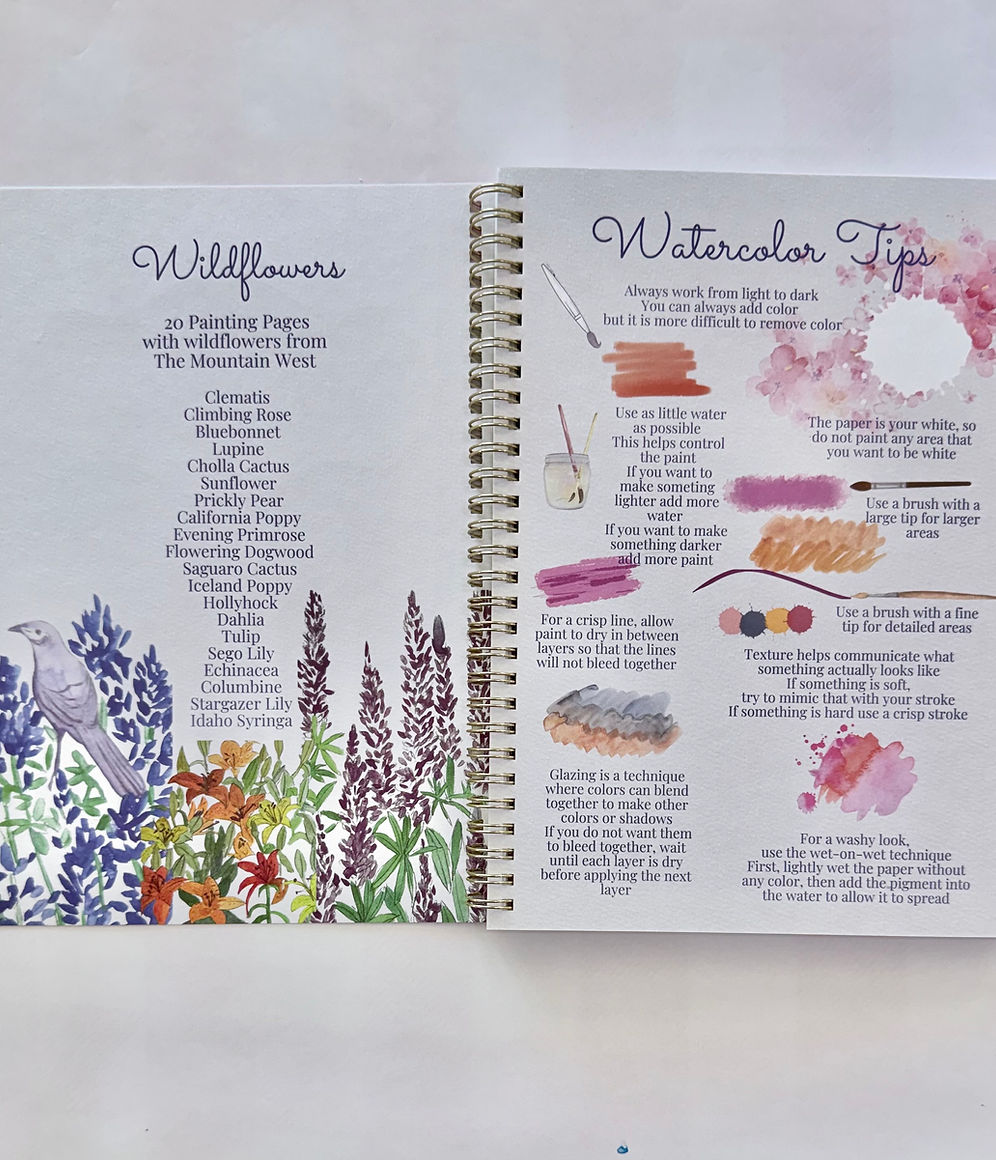 Wildflowers
20 Painting Pages
with wildflowers from
The Mountain West
Clematis
Climbing Rose
Bluebonnet
Lupine
Cholla Cactus
Sunflower
Prickly Pear
California Poppy
Evening Primrose
Flowering Dogwood
Saguaro Cactus
Iceland Poppy
Hollyhock
Dahlia
Tulip
Sego Lily
Echinacea
Columbine
Stargazer Lily
Idaho Syringa
Watercolor Tips
Always work from light to dark
You can always add color
but it is more difficult to remove color
Use as little water
as possible
This helps control
the paint
If you want to
make someting
lighter add more
water
If you want to make
something darker
add more paint
The paper is your white, so
do not paint any area that
you want to be white
Use a brush with a
large tip for larger
areas
Use a brush with a fine
tip for detailed areas
For a crisp line, allow
paint to dry in between
layers so that the lines
will not bleed together
Texture helps communicate what
something actually looks like
If something is soft,
try to mimic that with your stroke
If something is hard use a crisp stroke
Glazing is a technique
where colors can blend
together to make other
colors or shadows
If you do not want them
to bleed together, wait
until each layer is dry
before applying the next
layer
For a washy look,
use the wet-on-wet technique
First, lightly wet the paper without
any color, then add the pigment into
the water to allow it to spread